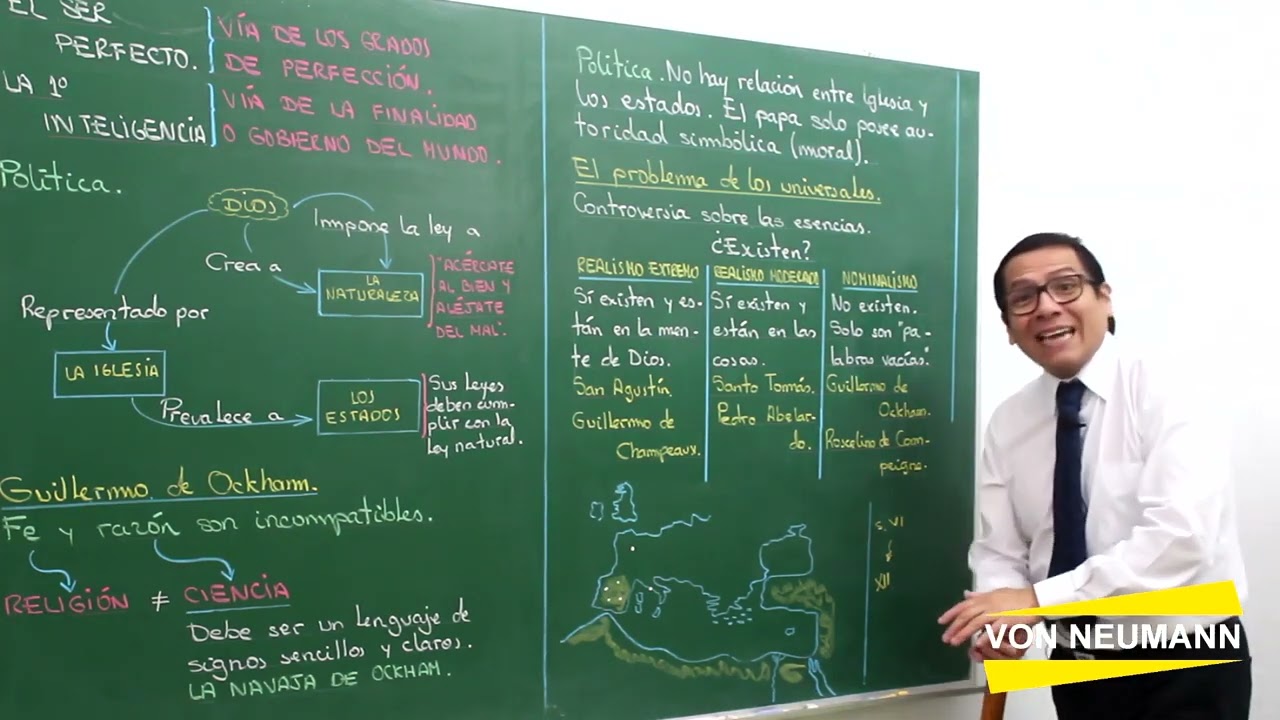 EL SER
PERFECTO.
VÍA DE LOS GRADOS
DE PERFECCIÓN.
LA 1º
INTELIGENCIA
VÍA DE LA FINALIDAD
O GOBIERNO DEL MUNDO.
Política.
DIOS
Impone la ley a
Crea a
LA
NATURALEZA
"ACÉRCATE
AL BIEN Y
ALÉJATE
DEL MAL".
Representado por
LA IGLESIA
Prevalece a
LOS
ESTADOS
Sus leyes
deben cum-
plir con la
ley natural.
Guillermo de Ockham.
Fe y razón son incompatibles.
RELIGIÓN ≠ CIENCIA
Debe ser un lenguaje de
signos sencillos y claros.
LA NAVAJA DE OCKHAM.
Política. No hay relación entre Iglesia y
los estados. El papa solo posee au-
toridad simbólica (moral).
El problema de los universales.
Controversia sobre las esencias.
¿Existen?
REALISMO EXTREMO
Sí existen y es-
tán en la men-
te de Dios.
San Agustín.
Guillermo de
Champeaux.
REALISMO MODERADO
Sí existen y
están en las
cosas.
Santo Tomás.
Pedro Abelar-
do.
NOMINALISMO
No existen.
Solo son "pa-
labras vacías."
Guillermo de
Ockham.
Roscelino de Com-
peigne.
S. VI
XII
VON NEUMANN